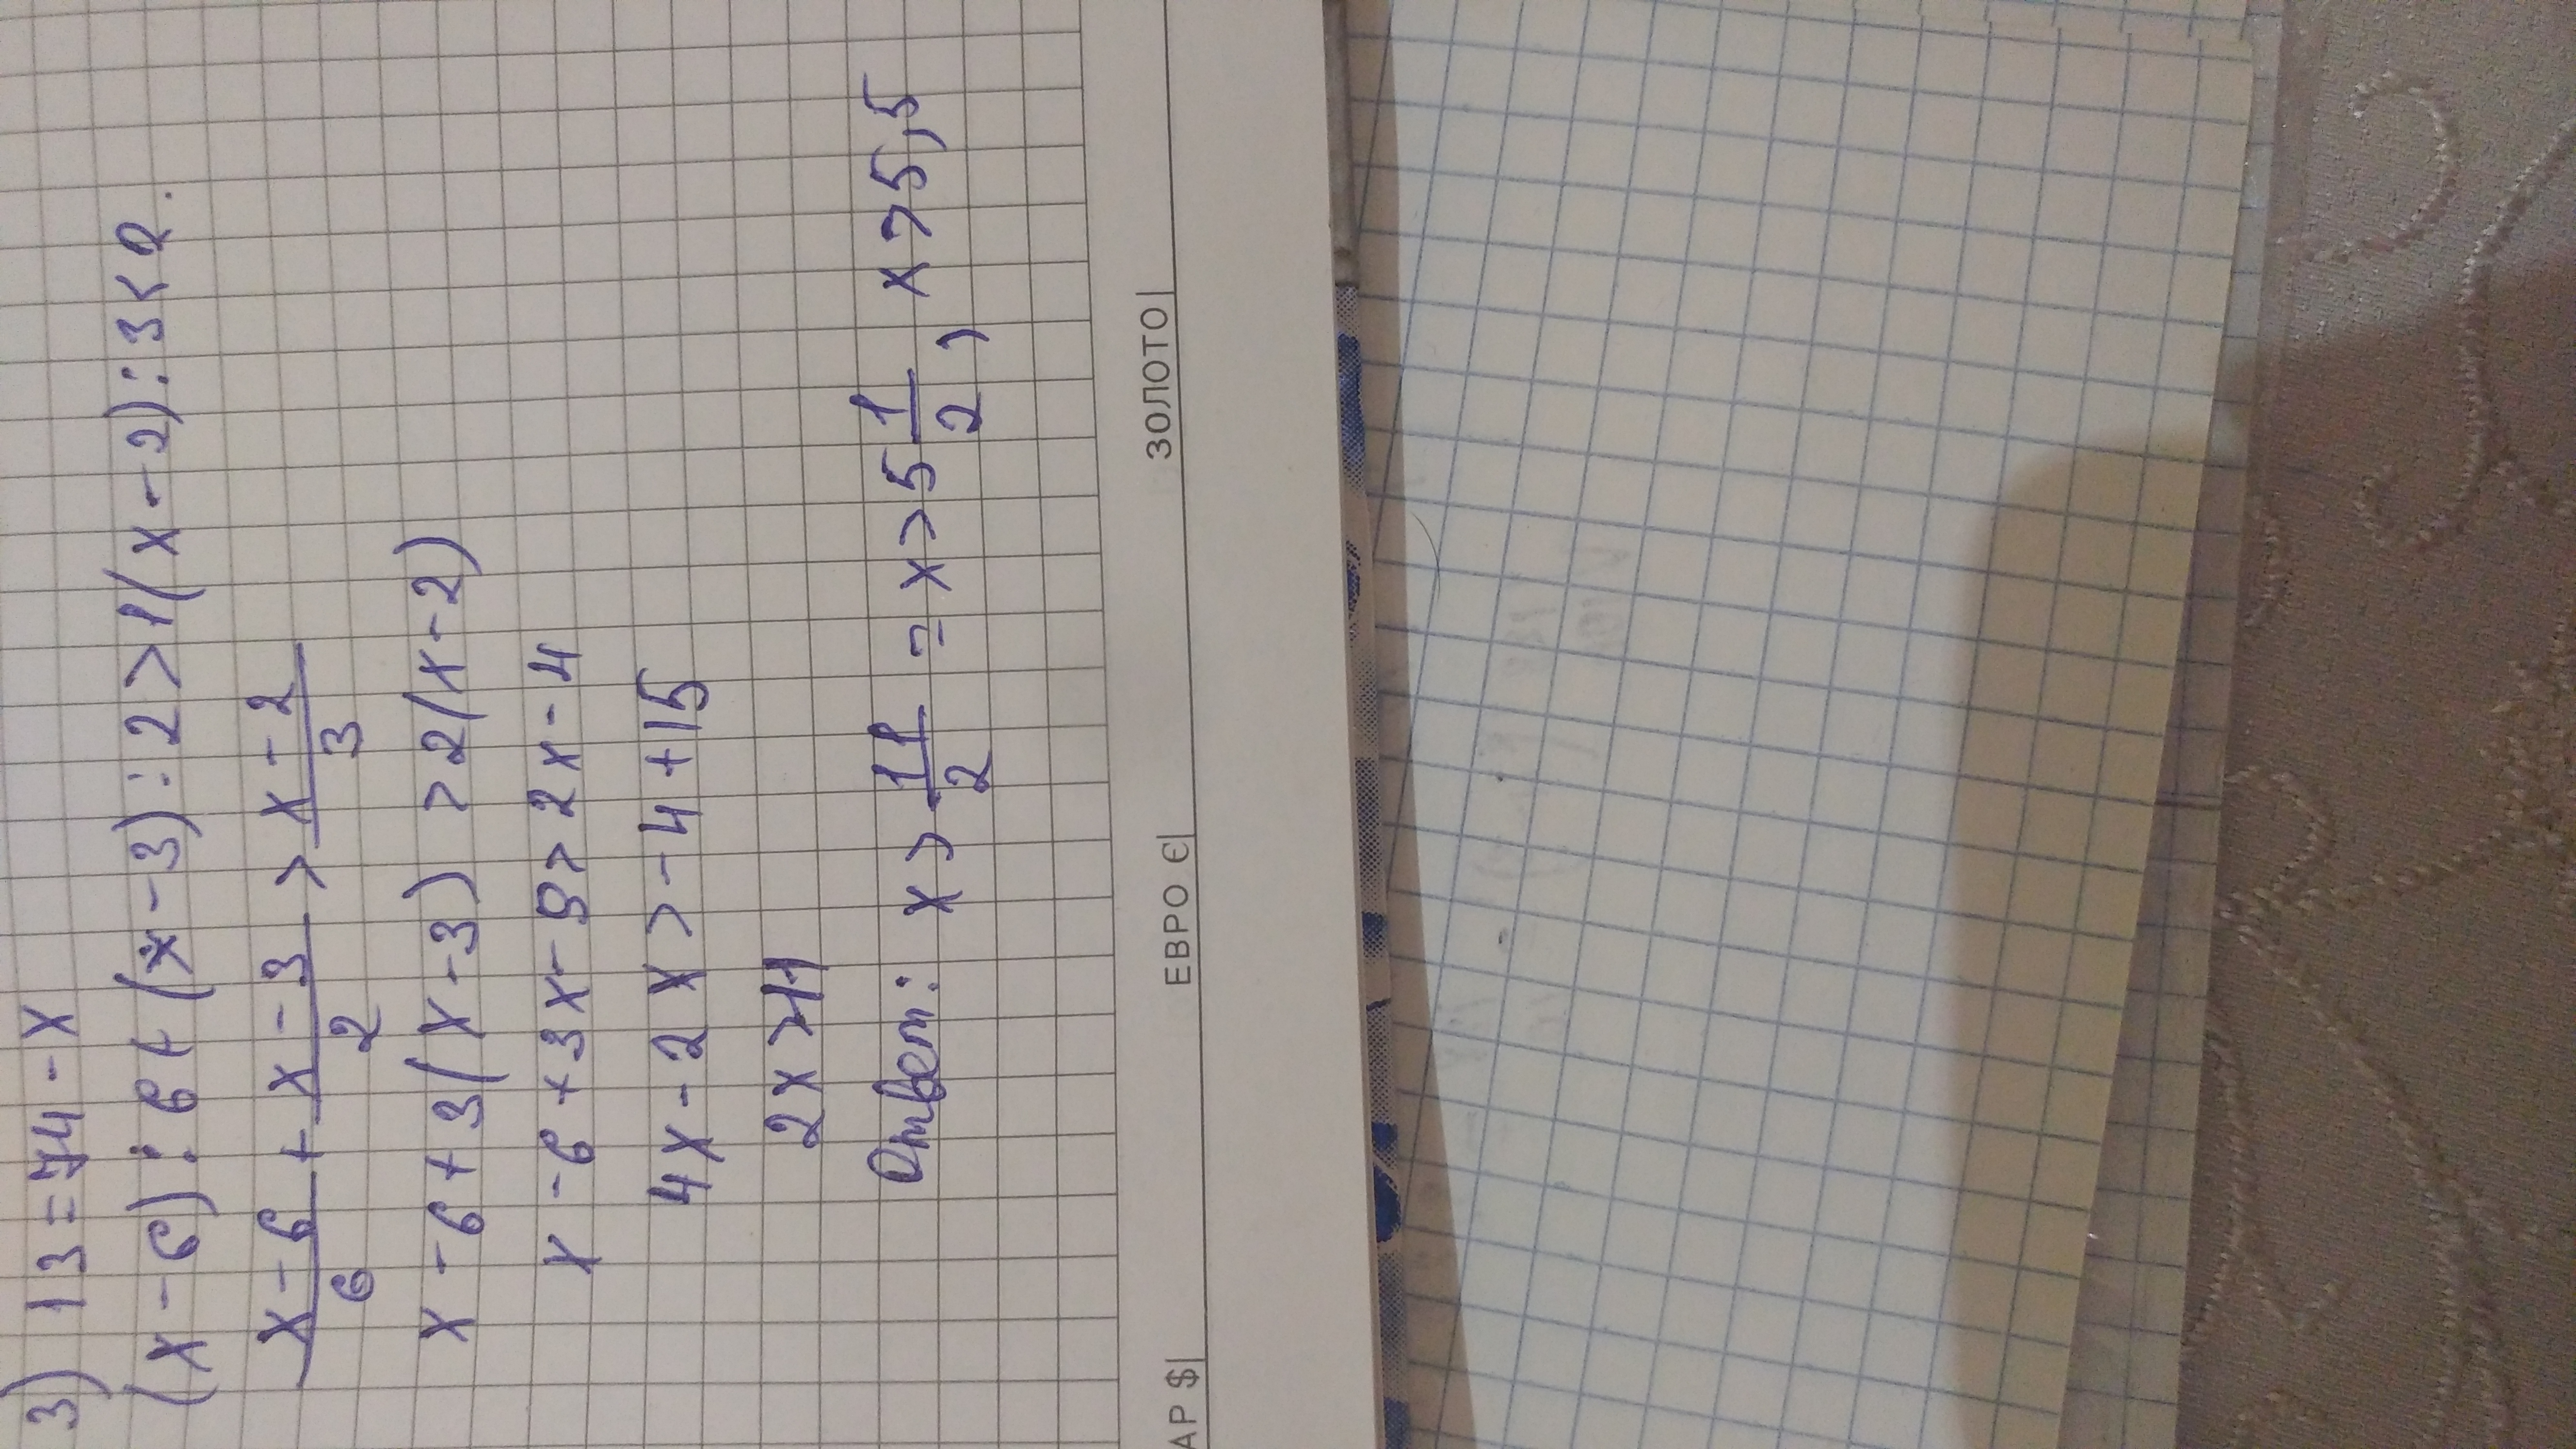 3) 13 = 74 - x
(x - 6) : 6 + (x - 3) : 2 > 1(x - 2) : 3 < 2.
x - 6/6 + x - 3/2 > x - 2/3
x - 6 + 3(x - 3) > 2(x - 2)
x - 6 + 3x - 9 > 2x - 4
4x - 2x > -4 + 15
2x > 11
Ответ: x > 11/2 = x > 5 1/2, x > 5,5
АР $ ЕВРО € ЗОЛОТО